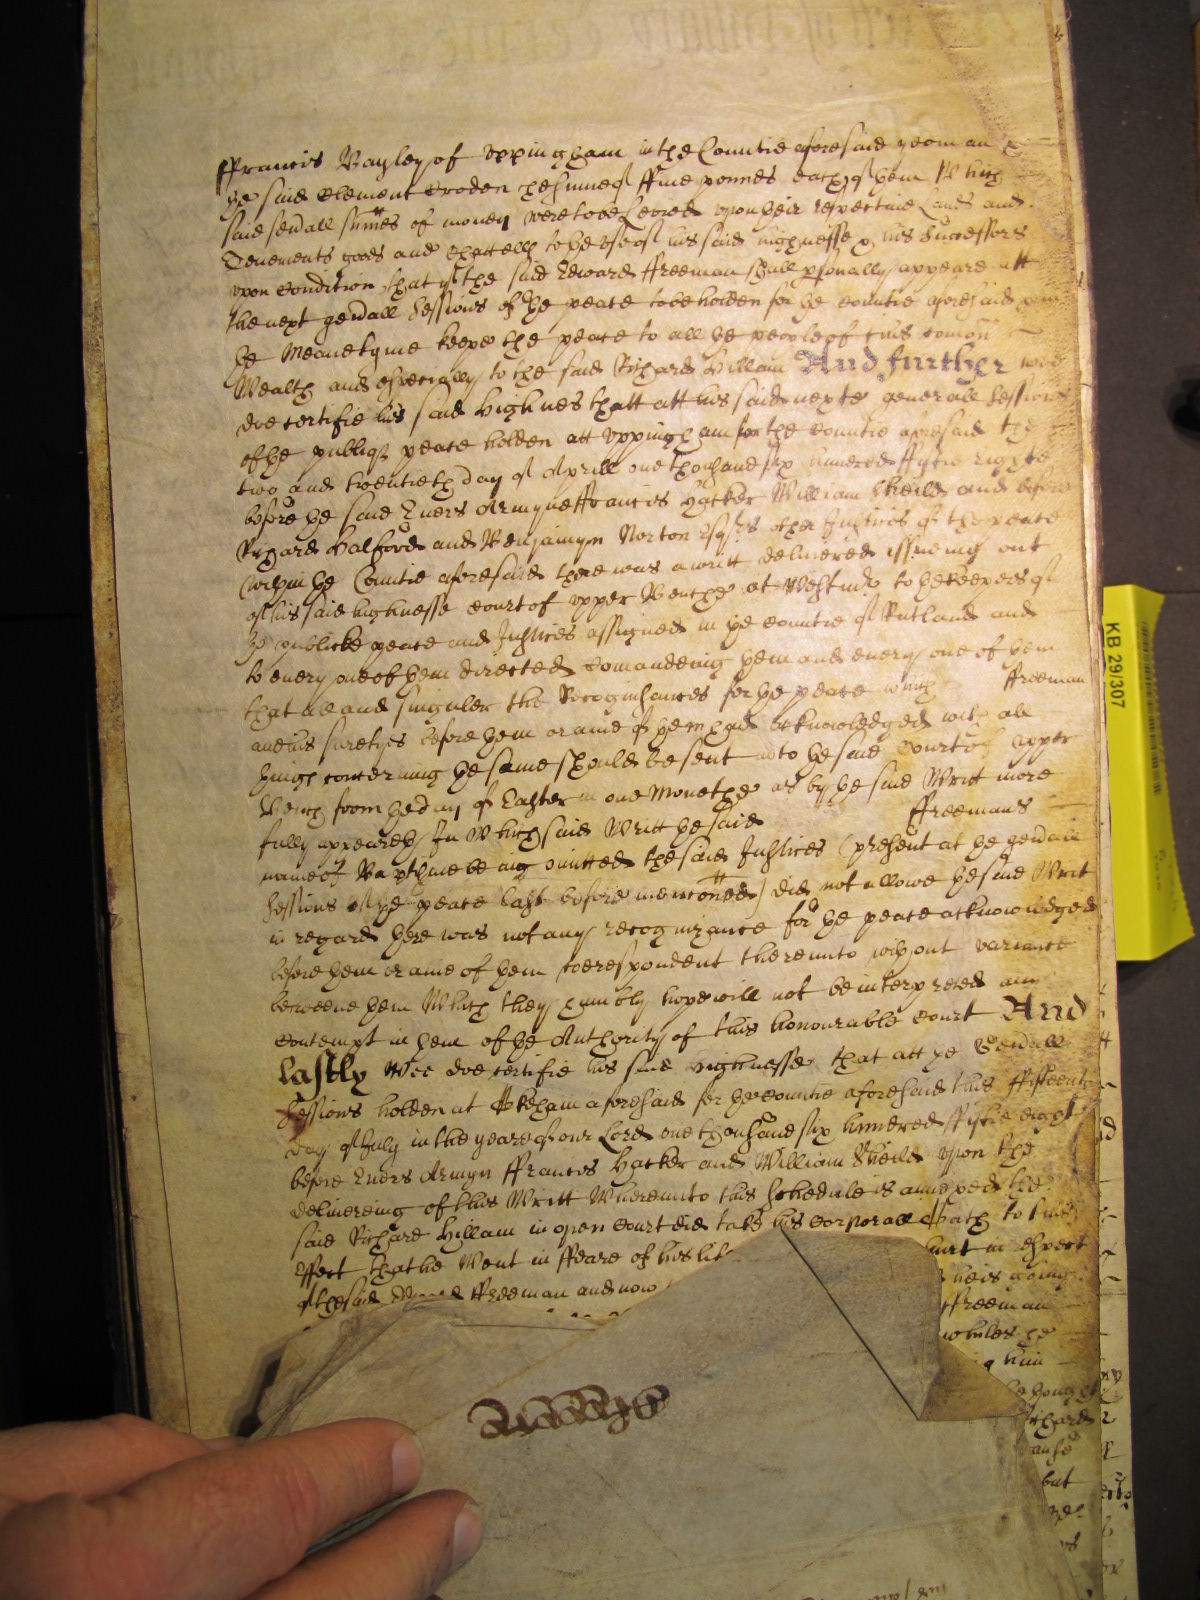 ffrancis Bayley of Uppingham in the Countie aforesaid yeoman
ye said Clement Croden the summe of ffive pounds each of them Which
said sevrall summes of money were to be Levied upon their respective Lands and
Tenements goods and Chattells to the use of his said Highnesse & his Successors
upon condition that if the said Edward ffreeman shall psonally appeare att
the next genrall Sessions of the peace to be holden for the Countie aforesaid and
the Meane tyme keepe the peace to all the people of this Comon
Wealth and especially to the said Richard Hillam And further wee
doe certifie his said Highnes thatt att his said nexte generall Sessions
of the publiqe peace holden att Uppingham for the Countie aforesaid the
two and twentieth day of Aprill one thousand six hundred ffyftie eighte
before the said Evers Armyne ffrancis Hacker William Sheild and before
Richard Halford and Beniamyn Norton Esqrs other Justices of the peace
within the Countie aforesaid there was a writt delivered issueing out
of his said highnesse Court of upper Benche at Westmr to the Keepers of
the publicke peace and Justices assigned in the Countie of Rutland and
to every one of them directed Comandeing them and every one of them
that all and singuler the Recognisances for the peace which ffreeman
and his suretyes before them or anie of them had acknowledged with all
things concerning the same should be sent into the said Court of upper
Bench from the day of Easter in one Monethe as by the said Writt more
fully appeareth In Which said Writt the said ffreemans
name of Baptisme being omitted the said Justices (present at the genrall
Sessions of the peace last before mentioned) did not allowe the said Writ
in regard there was not any recognizance for the peace acknowledged
before them or anie of them correspondent thereunto without variance
betweene them Which they humbly hope will not be interpreted any
contempt in them of the Authority of this honourable Court And
lastly Wee doe certifie his said Highnesse that att the Genrall
Sessions holden at Okeham aforesaid for the Countie aforesaid this ffifteenth
day of July in the yeare of our Lord one thousand six hundred ffiftie eight
before Evers Armyn ffrancis Hacker and William Sheild upon the
delivereing of this Writt Whereunto this schedule is annexed the
said Richard Hillam in open Court did take his Corporall Oath to this
effect that he Went in ffeare of his life hurt in respect
of the said ffreeman and now his going
ffreeman
whiles he
him
he thought
Richard
cause
but
KB 29/307